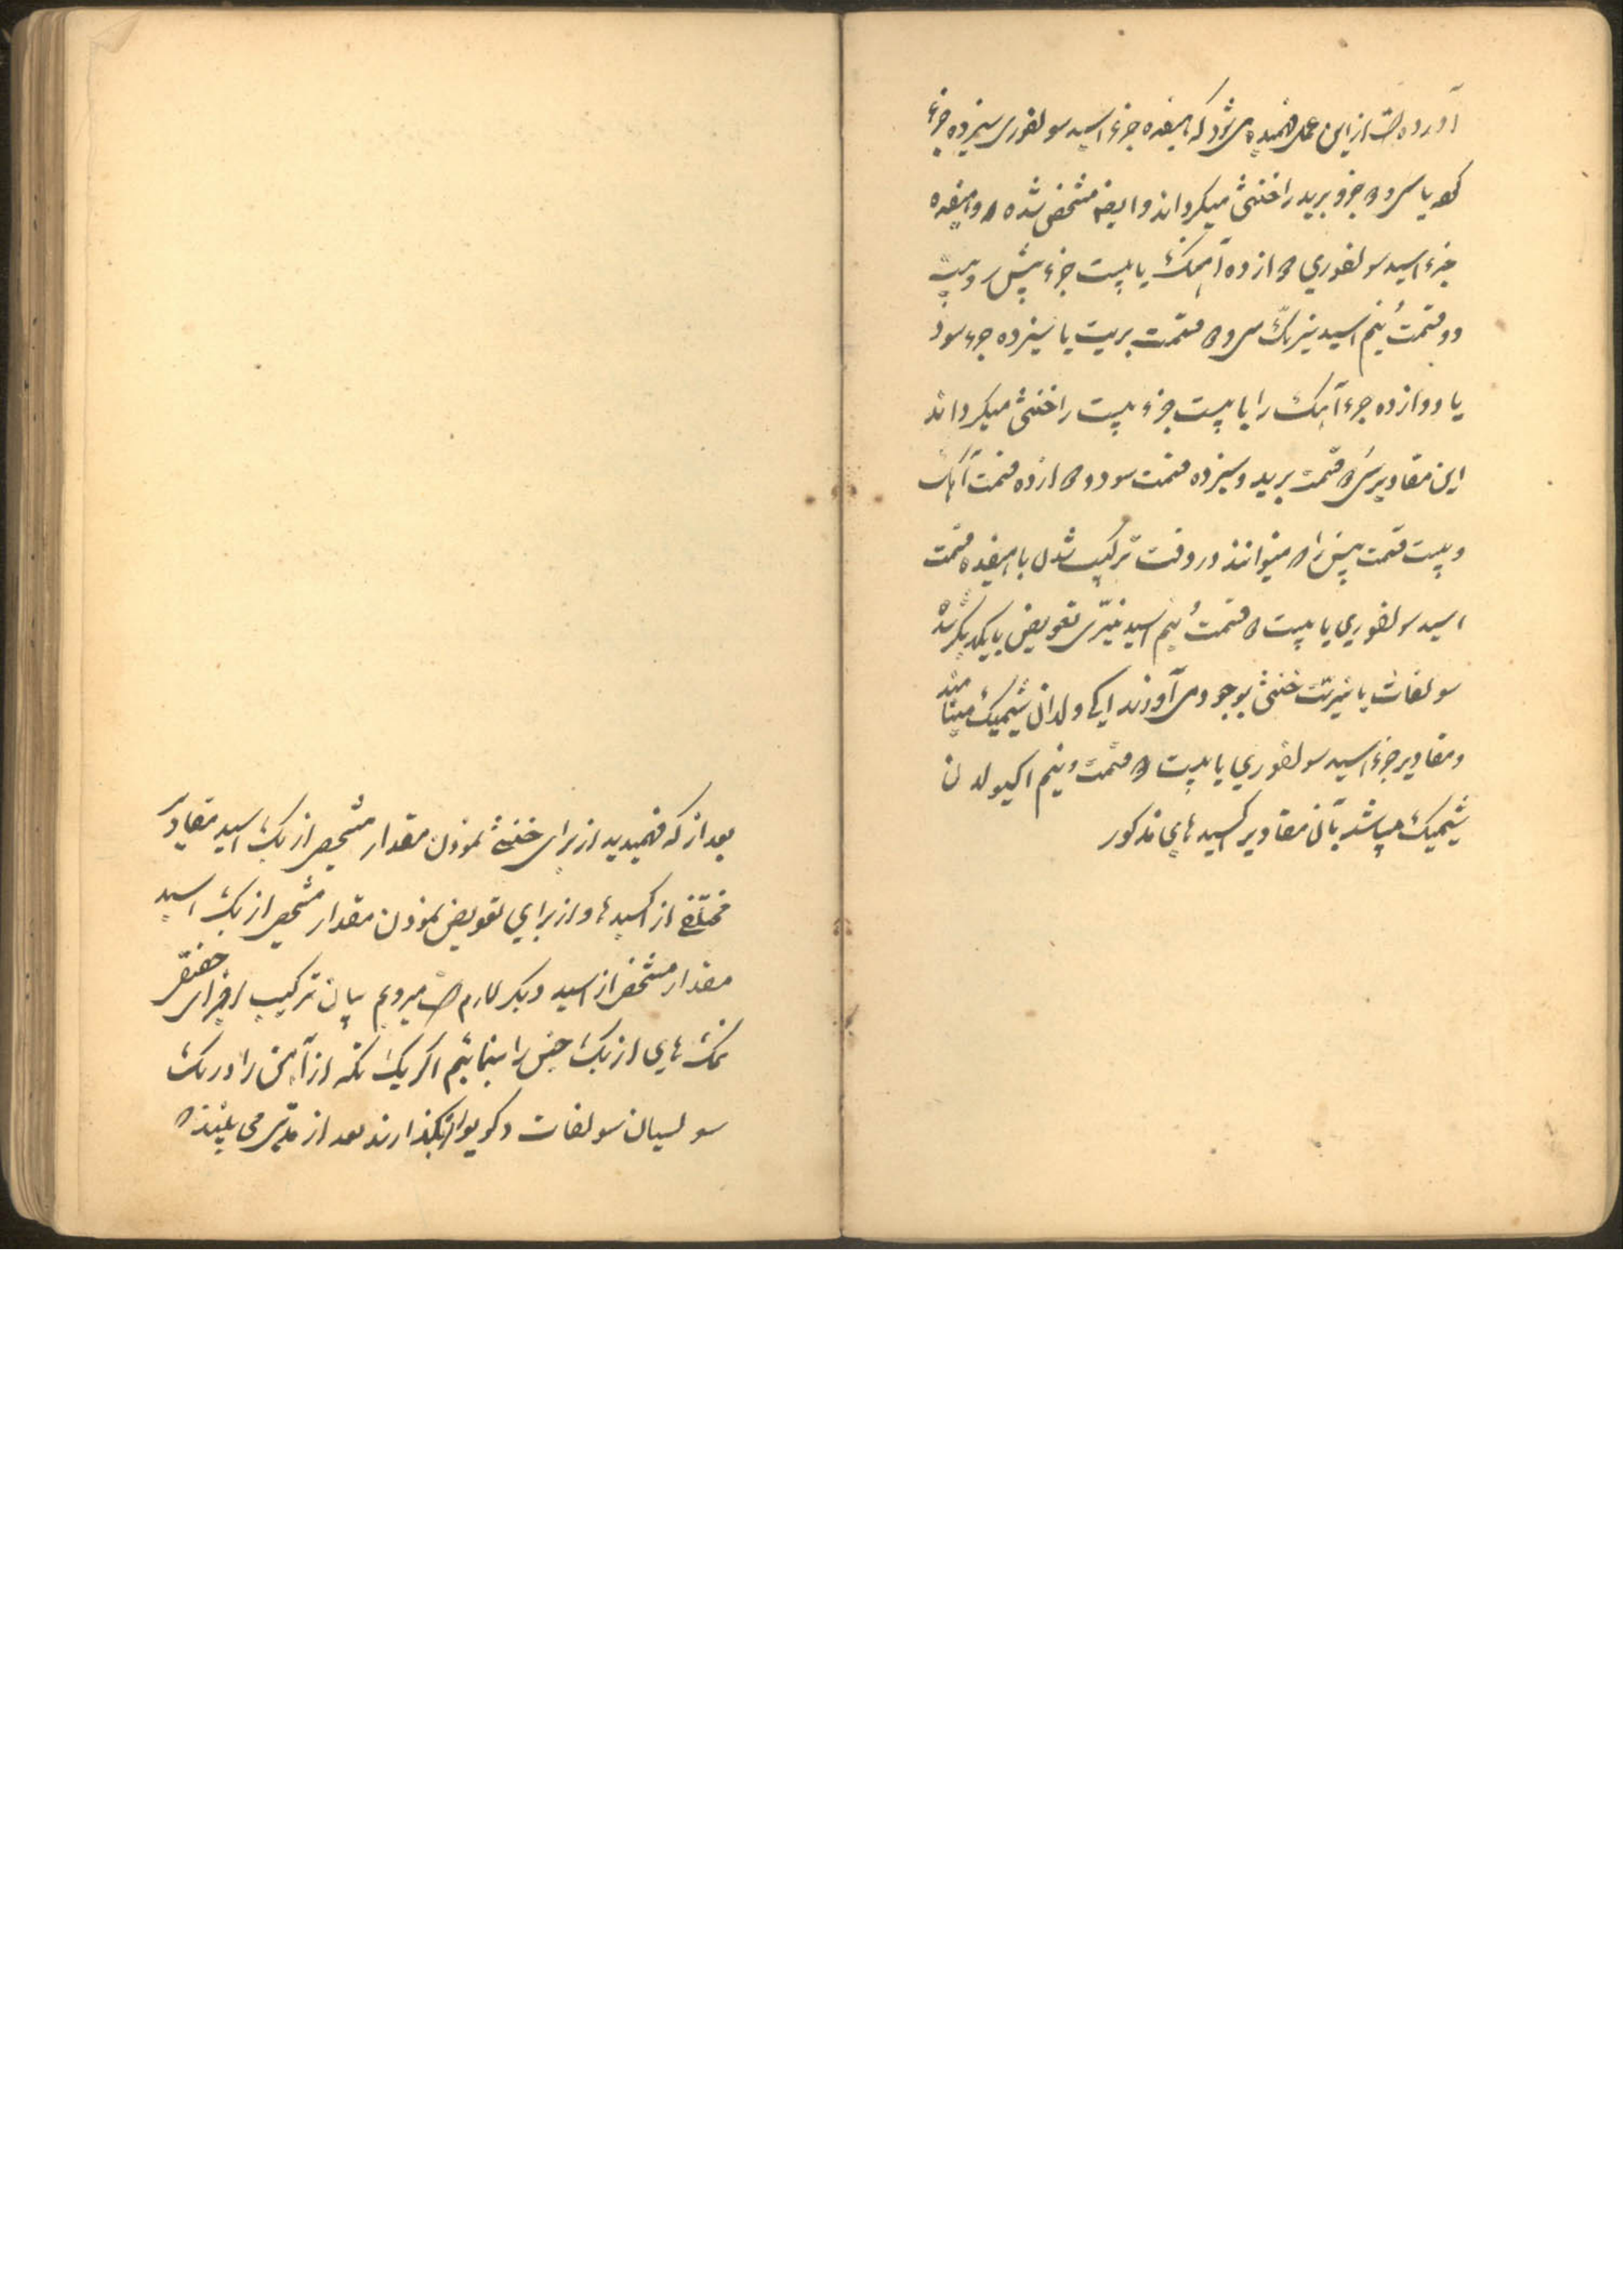 آورده است از این عمل فهمیده می شود که هیفده جزء اسید سولفوری سیزده جزء
یا سی و جزو برید را خنثی میکرداند و ایضا مشخص شده و هیفده
جزء اسید سولفوری از ده آهک یا بیست جزء پیش
دو قسمت نیم اسید نیتریک سی و قسمت بریت یا سیزده جزء سود
یا دوازده جزء آهک را یا بیست جزء بیست را خنثی میکرداند
این مقادیر سی قسمت برید و سیزده قسمت سود دو ازده قسمت آهک
و بیست قسمت میتوانند در وقت ترکیب شدن با هیفده قسمت
اسید سولفوری یا بیست قسمت نیم اسید نیتری تعویض بایکدیکر شد
سولفات یا نیترت خنثی بوجود می آورند اکی ولدان شیمیک مینامند
و مقادیر جزء اسید سولفوری یا بیست قسمت و نیم اکیولدن
شیمیک میباشد بآن مقادیر اکسید های مذکور
بعد از که فهمیدید از برای خنثی نمودن مقدار مشخص از یک اسید مقادیر
مختلفی از اکسیدها و از برای تعویض نمودن مقدار مشخص از یک اسید
مقدار مشخص از اسید دیکر لازم است میرویم بیان ترکیب اجزای حقیقی
نمک های از یک جنس را بنمائیم اکر یک تکه از آهن را در یک
سولسیان سولفات دکویور بکذارند بعد از مدتی می بینند